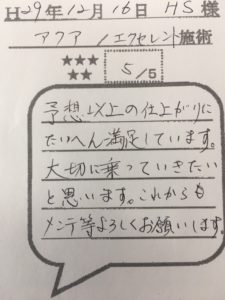 H29年12月16日 HS様
アクア / エクセレント施術
★★★
★★
5/5
予想以上の仕上がりに
たいへん満足しています。
大切に乗っていきたい
と思います。これからも
メンテ等よろしくお願いします。